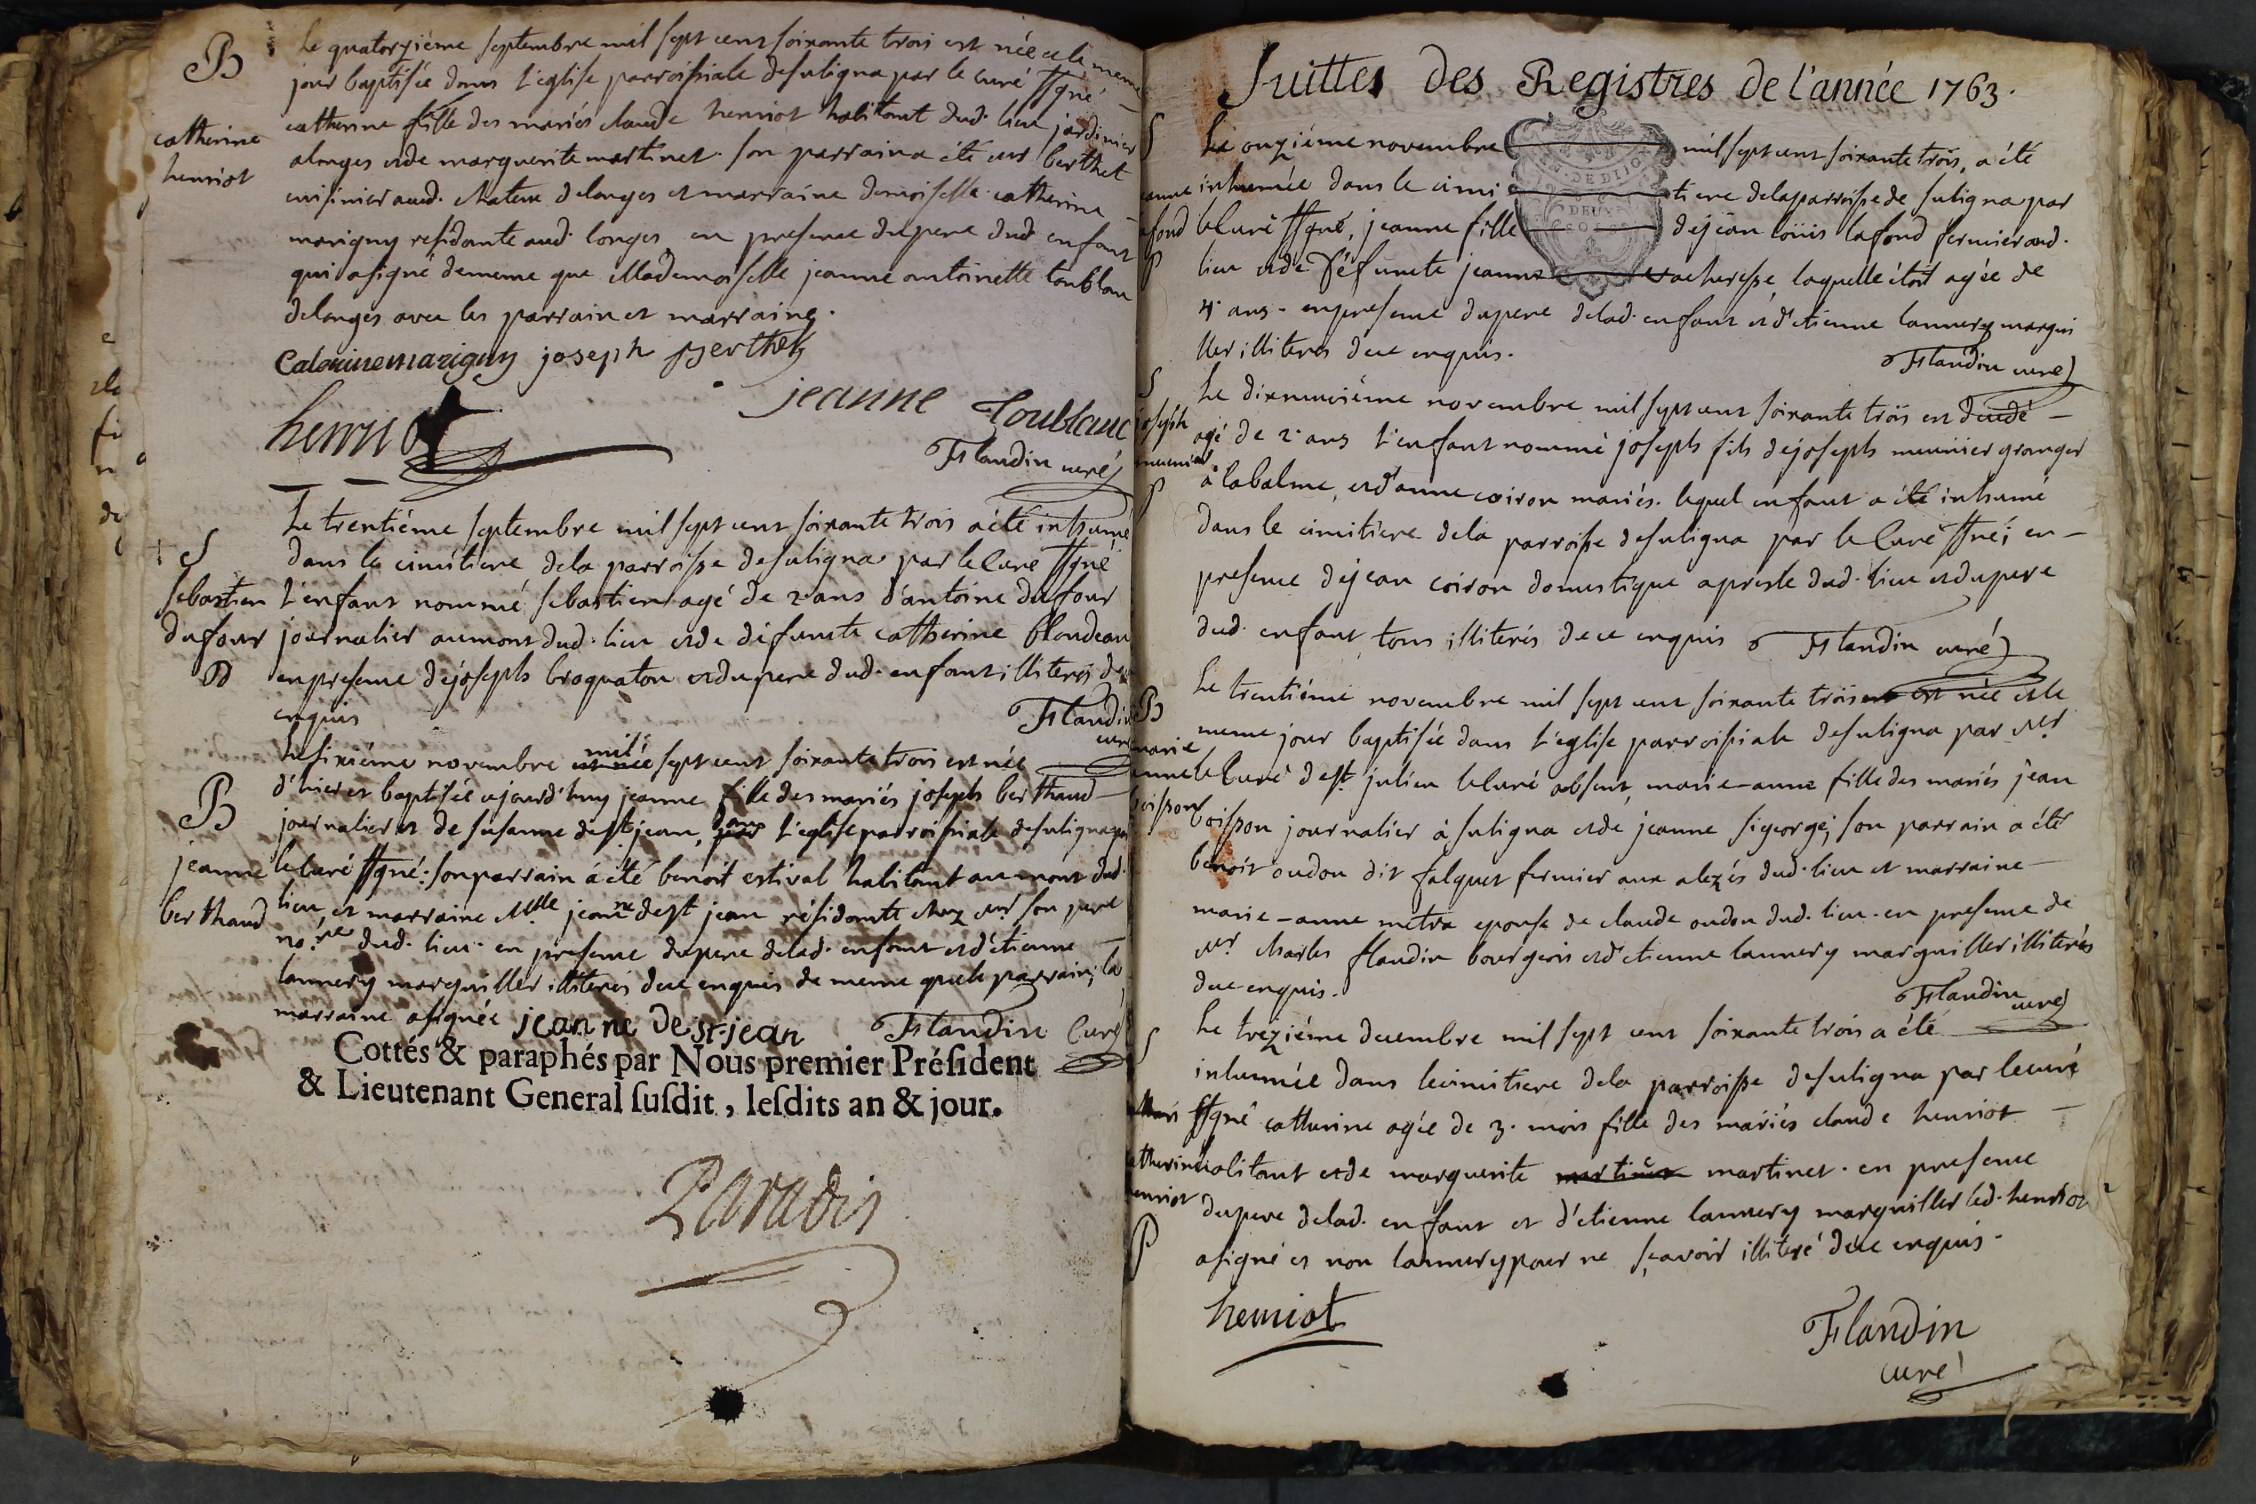 B
Le quatorziéme septembre mil sept cent soixante trois est née et le meme
jour baptisée dans l'eglise parroissiale de suligna par le curé ssgné
catherine fille des mariés claude henriot habitant dud. lieu jardinier
catherine
henriot
a longes et de marguerite martinet. son parrain a été mr berthet
cuisinier aud. chateau de longes et marraine demoiselle catherine
marigny residante aud. longes en presence du pere dud enfant
qui a signé de meme que Mademoiselle jeanne antoinette loublan
de longes avec les parrain et marraine.
joseph berthet
henriot
jeanne Loublanc
Flandin curé
S
sebastien
dufour
P
Le trentiéme septembre mil sept cent soixante trois a été inhumé
dans le cimitiere de la parroisse de suligna par le Curé ssgné
l'enfant nommé sebastien agé de 2 ans d'antoine dufour
journalier au mont dud. lieu et de défuncte catherine blondeau
en presence de joseph broquaton et du pere dud. enfant illiterés de
enquis
Flandin
curé
B
jeanne
berthaud
Le sixiéme novembre mil sept cent soixante trois est née
d'hier et baptisée aujourd'huy jeanne fille des mariés joseph berthaud
journalier et de susanne de st jean, dans l'eglise parroissiale de suligna par
le curé ssgné: son parrain á été benoit estival habitant au mont dud.
lieu, et marraine Mlle jeanne de st jean résidante chez mr son pere
no.re dud. lieu. en presence du pere de lad. enfant et d'étienne
lannery marguiller illiterés de ce enquis de meme que le parrain; la
marraine a signée jeanne de st-jean Flandin Curé
Cottés & paraphés par Nous premier Préſident
& Lieutenant General ſuſdit, leſdits an & jour.
Paradis
Suittes des Registres de l'année 1763.
S
jeanne
lafond
P
Le onziéme novembre mil sept cent soixante trois, a été
inhumée dans le cimitiere de la parroisse de suligna par
le Curé ssgné, jeanne fille de jean loüis lafond fermier aud.
lieu et de Défuncte jeanne vacheresse laquelle étoit agée de
4 ans. en presence du pere de lad. enfant et d'etienne lannery margui
ller illiterés de ce enquis.
Flandin curé
S
joseph
meunier
P
Le dixneuviéme novembre mil sept cent soixante trois est decedé
agé de 2 ans l'enfant nommé joseph fils de joseph meunier granger
à labalme, et d'anne coiron mariés. lequel enfant a été inhumé
dans le cimitiere de la parroisse de suligna par le Curé ssné; en
presence de jean coiron domestique apreste dud. lieu et du pere
dud. enfant, tous illiterés de ce enquis Flandin curé
B
marie
anne
boisson
Le trentiéme novembre mil sept cent soixante trois est née et le
meme jour baptisée dans l'eglise parroissiale de suligna par mr
le Curé de st. julien le Curé absent, marie-anne fille des mariés jean
boisson journalier à suligna et de jeanne sigeorge; son parrain a été
benoit oudon dit falquet fermier aux alezés dud. lieu et marraine
marie-anne metra epouse de claude oudon dud. lieu. en presence de
mr. charles flandin bourgeois et d'etienne lannery marguiller illiterés
de ce enquis.
Flandin curé
S
Le treziéme decembre mil sept cent soixante trois a été
inhumée dans le cimitiere de la parroisse de suligna par le curé
ssgné catherine agée de 3. mois fille des mariés claude henriot
catherine
henriot
P
habitant et de marguerite martinet. en presence
du pere de lad. enfant et d'etienne lannery marguiller led. henriot
a signé et non lannery pour ne sçavoir illiteré de ce enquis.
henriot
Flandin
curé